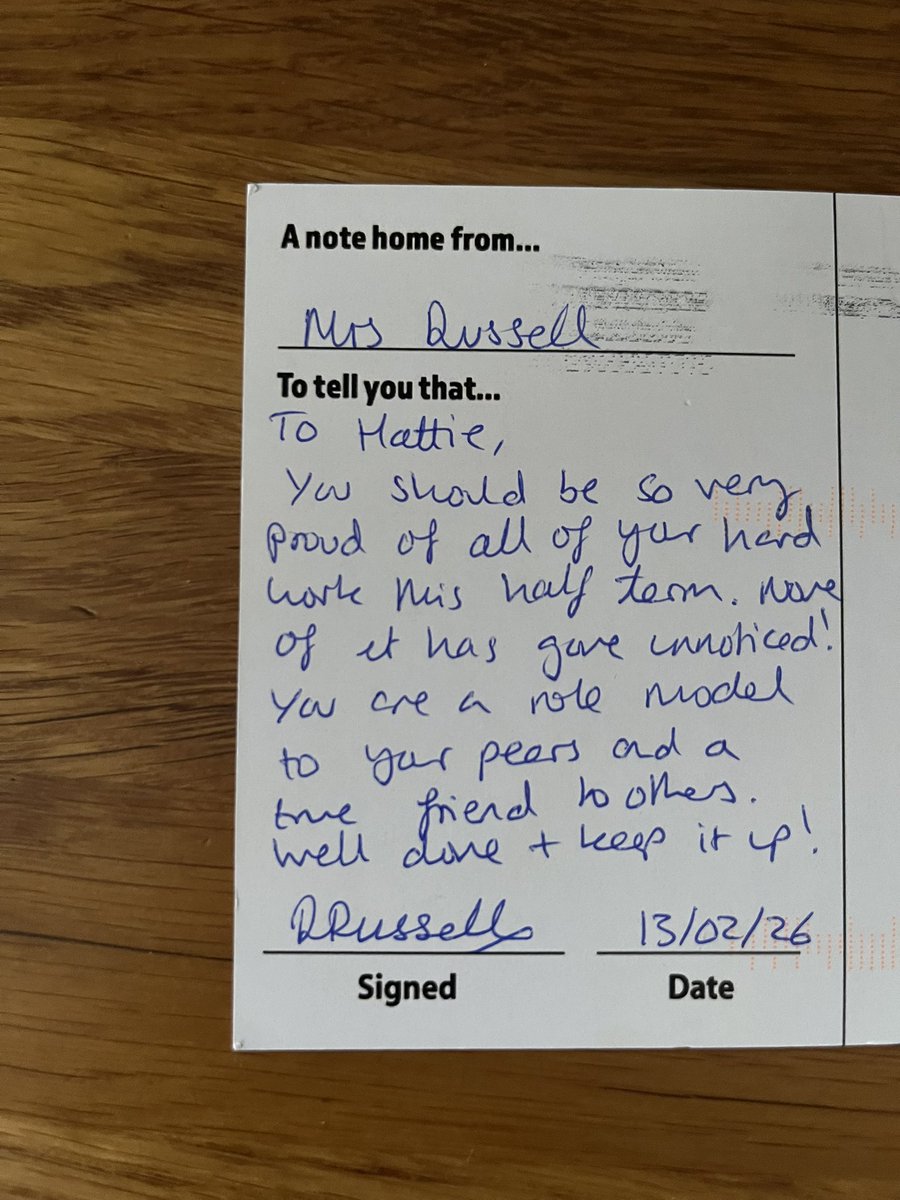 A note home from...
Mrs Russell
To tell you that...
To Hattie,
You should be so very
proud of all of your hard
work this half term. None
of it has gone unnoticed!
You are a role model
to your peers and a
true friend to others.
Well done + keep it up!
RRussell 13/02/26
Signed Date